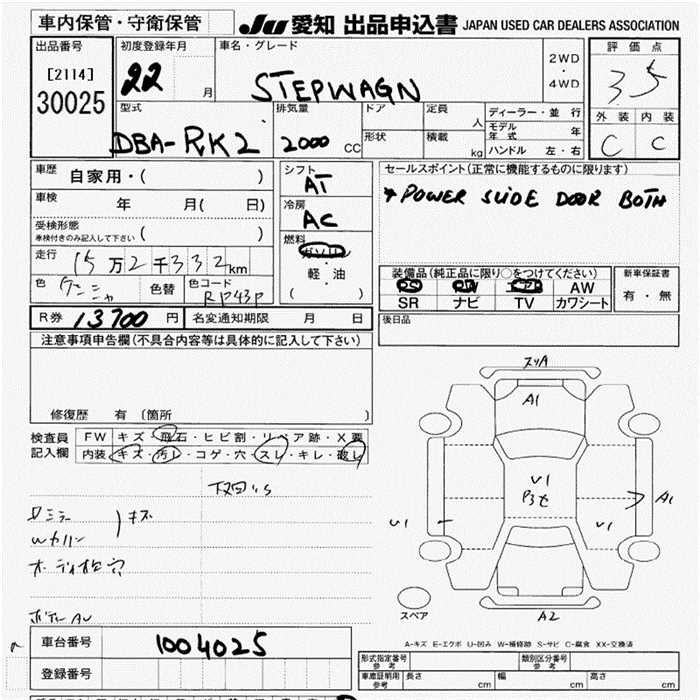 車内保管・守衛保管
JU 愛知 出品申込書 JAPAN USED CAR DEALERS ASSOCIATION
出品番号
[2114]
30025
初度登録年月
22 月
車名・グレード
STEPWAGN
2WD
・
4WD
評価点
3 5
外装 内装
C C
型式
DBA-RK2
排気量
2000 CC
ドア
形状
定員 人
積載 kg
ディーラー・並行
モデル年式 年
ハンドル 左・右
車歴 自家用・( )
車検 年 月( 日)
受検形態
車検付きのみ記入して下さい ( )
走行 15万2千332km
色
色替
色コード
RP43P
シフト
AT
冷房
AC
燃料
ガソリン
・
軽・油
( )
セールスポイント(正常に機能するものに限ります)
* POWER SLIDE DOOR BOTH
装備品(純正品に限り○をつけてください)
AW
SR ナビ TV カワシート
新車保証書
有・無
R券 13700 円
名変通知期限 月 日
後日品
注意事項申告欄(不具合内容等は具体的に記入して下さい)
修復歴 有 〔箇所 〕
検査員
記入欄
FW キズ・飛石・ヒビ割・リペア跡・X要
内装 キズ・汚レ・コゲ・穴・スレ・キレ・破レ
キズ
スリA
A1
U1
U1
U1
A1
A2
スペア
A-キズ E-エクボ U-凹み W-補修跡 S-サビ C-腐食 XX-交換済
車台番号 1004025
登録番号
形式指定番号
参考
類別区分番号
参考
車庫証明用
参考
長さ cm
幅 cm
高さ cm